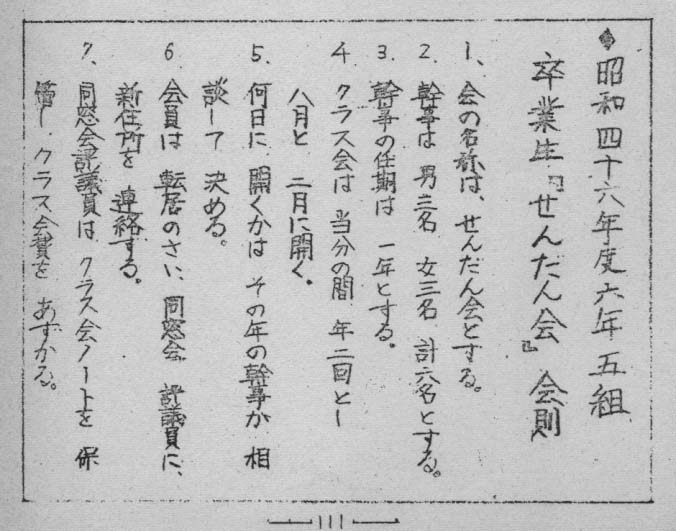 ◆昭和四十六年度六年五組
卒業生『せんだん会』会則
1、会の名称は、せんだん会とする。
2、幹事は 男三名 女三名 計六名とする。
3、幹事の任期は 一年とする。
4 クラス会は 当分の間 年二回とし
八月と 二月に開く。
5、何日に 開くかは その年の幹事が 相
談して 決める。
6 会員は 転居のさい、同窓会 評議員に、
新住所を 連絡する。
7、同窓会評議員は クラス会ノートを 保
管し、クラス会費を あずかる。
111